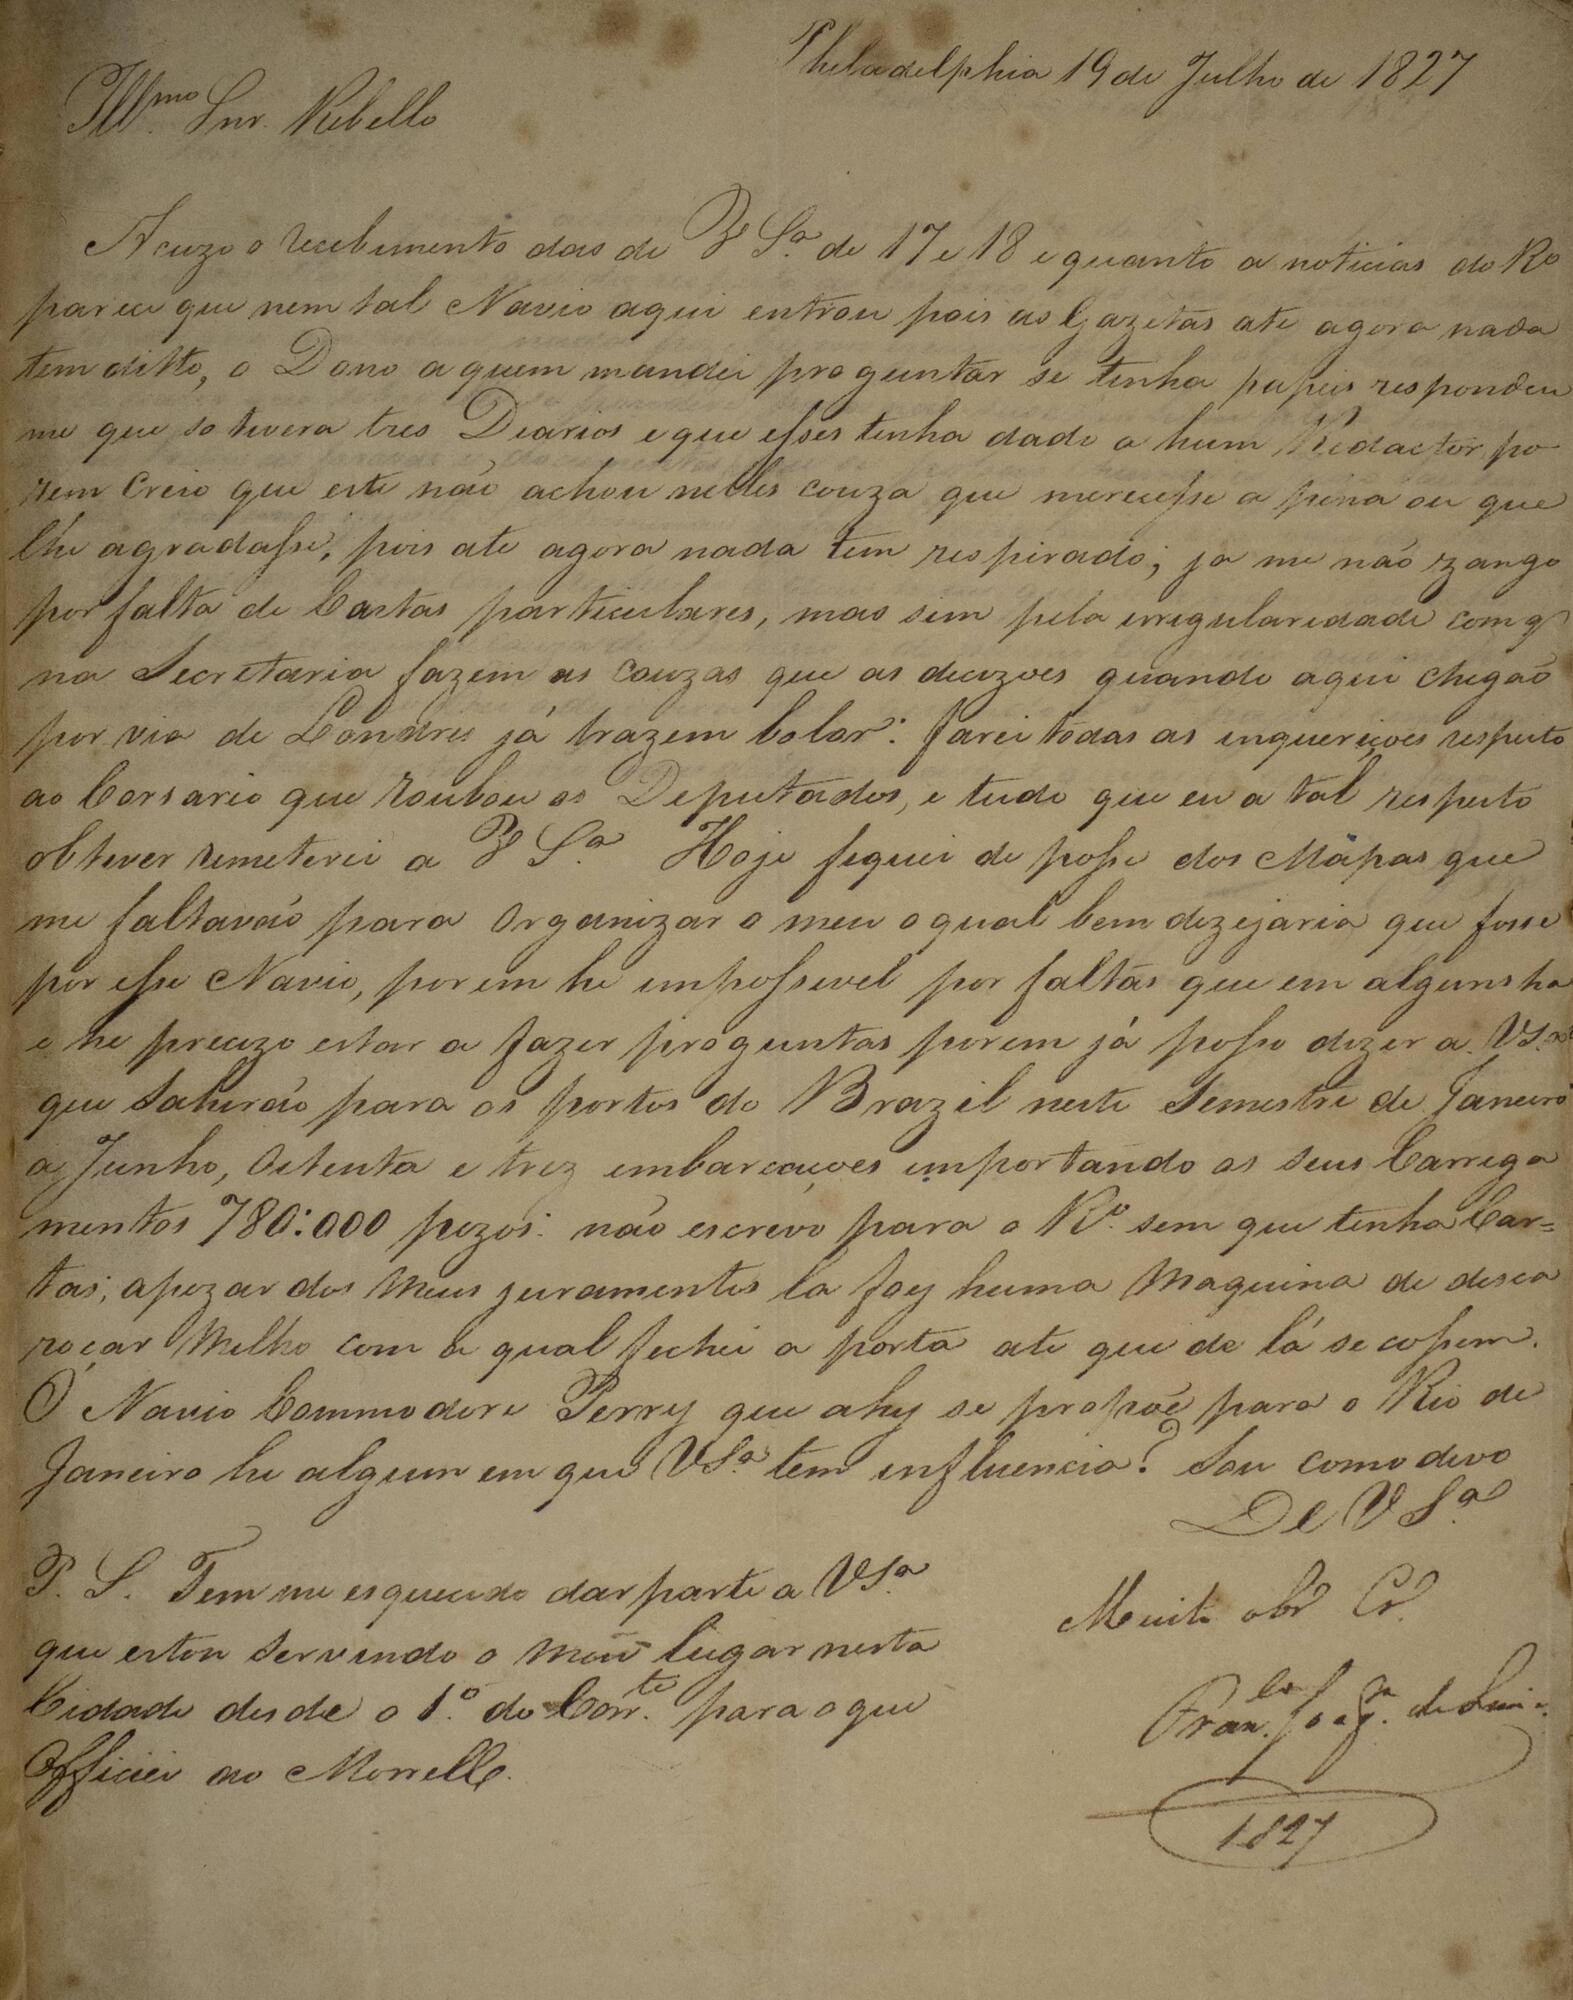 Philadelphia 19 de Julho de 1827
Ill.mo Snr. Rebello
Acuzo o recebimento das de V S.a de 17 e 18 e quanto a noticias do Ro
parece que nem tal Navio aqui entrou pois as Gazetas ate agora nada
tem ditto, o Dono a quem mandei preguntar se tinha papeis respondeu
me que so tivera tres Diarios e que esses tinha dado a hum Redactor, po
rem creio que este não achou nelles couza que merecesse a pena ou que
lhe agradasse, pois ate agora nada tem respirado; ja me não zango
por falta de Cartas particulares, mas sim pela irregularidade com q
na Secretaria fazem as couzas que as decizoes quando aqui chegão
por via de Londres já trazem bolor: farei todas as inquerições respeito
ao Corsario que roubou os Deputados, e tudo que eu a tal respeito
obtever remeterei a V S.a Hoje fiquei de posse dos Mapas que
me faltavão para organizar o meu o qual bem dezejaria que fosse
por esse Navio, porem he impossivel por faltas que em alguns ha
e he precizo estar a fazer preguntas porem já posso dizer a VS.a
que Sahirão para os portos do Brazil neste Semestre de Janeiro
a Junho, Oitenta e trez embarcações importando os seus Carrega
mentos 780:000 pezos: não escrevo para o R.o sem que tenha Car=
tas; apezar dos meus juramentos la foy huma Maquina de desca
roçar Milho com a qual fechei a porta ate que de lá se
O Navio Commodore Perry que ahy se propõe para o Rio de
Janeiro he algum em que VS.a tem influencia? Sou como devo
De V S.a
P. S. Tem me esquecido dar parte a VS.a
que estou servindo o meu lugar nesta
Cidade desde o 1.o do Corr.te para o que
Officiei ao Morrell.
Muito obr Cr.
Fran.co Joaq.m de Lima
1827